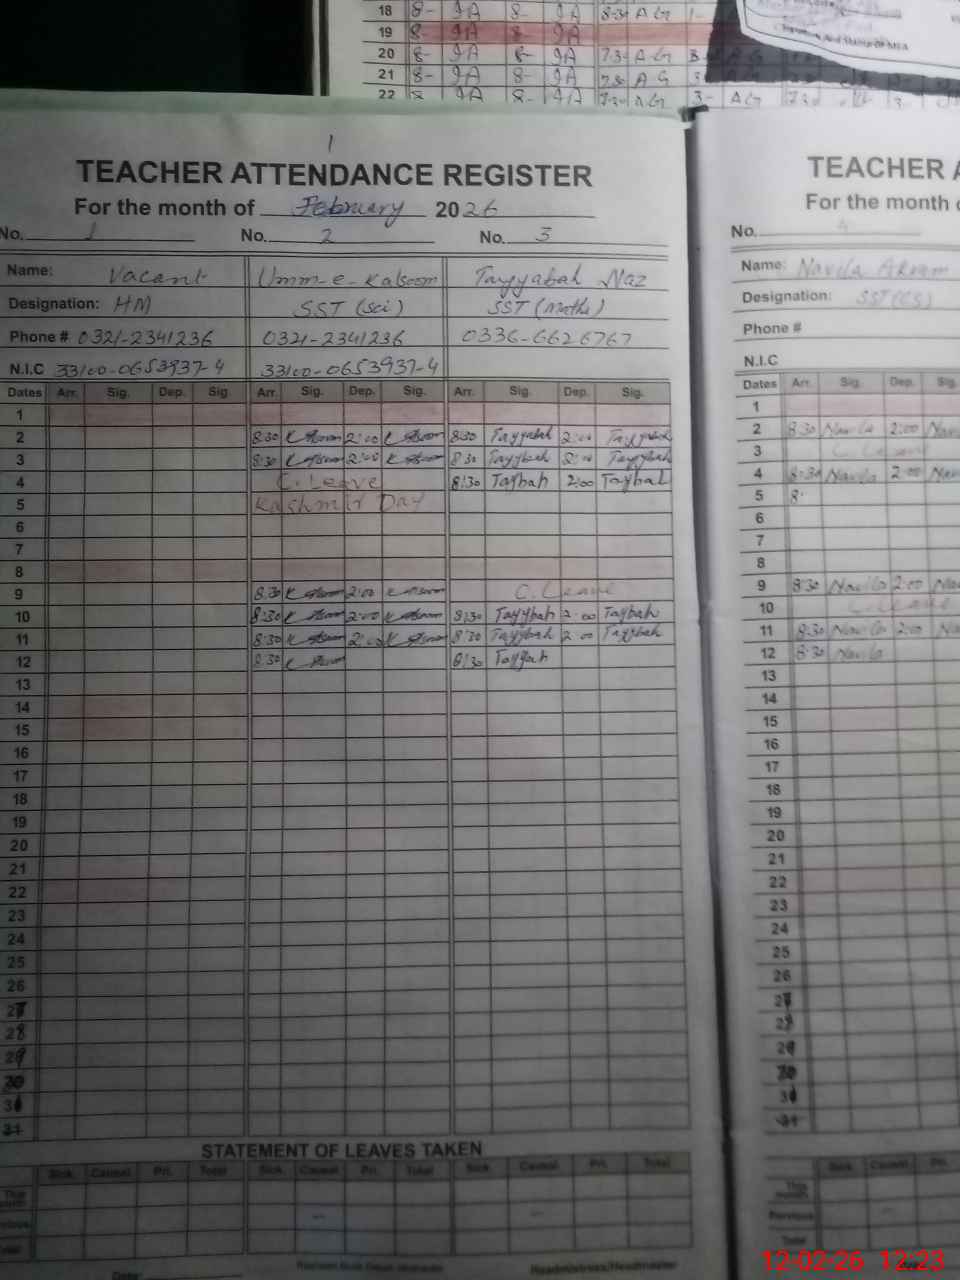 18 8- JA 8- JA 8-3 AG 1-
19 8- JA 8- JA
20 8- JA 8- JA 7-3- A-G
21 8- JA 8- JA 7-30 AG
22 8- JA 8- JA 7-3- AG 3- AG
1
TEACHER ATTENDANCE REGISTER
For the month of February 2026
No. 1 No. 2 No. 3
Name: Vacant Umm-e-Kalsoom Tayyabah Naz
Designation: HM SST (Sci) SST (Maths)
Phone # 0321-2341236 0321-2341236 0336-6626767
N.I.C 33100-0653937-4 33100-0653937-4
Dates Arr. Sig. Dep. Sig. Arr. Sig. Dep. Sig. Arr. Sig. Dep. Sig.
1
2 8:30 2:00 8:30 Tayybah 2:00 Tayybah
3 8:30 2:00 8:30 Tayybah 2:00 Tayybah
4 C. Leave 8:30 Taybah 2:00 Taybah
5 Kashmir Day
6
7
8
9 8:30 2:00 C. Leave
10 8:30 2:00 8:30 Tayybah 2:00 Taybah
11 8:30 2:00 8:30 Tayybah 2:00 Tayybah
12 8:30 8:30 Tayybah
13
14
15
16
17
18
19
20
21
22
23
24
25
26
27
28
29
30
31
STATEMENT OF LEAVES TAKEN
Sick Casual Pri. Total Sick Casual Pri. Total Sick Casual Pri. Total
This month
Previous
Total
Headmistress/Headmaster
TEACHER A
For the month o
No. 4
Name: Navila Akram
Designation: SST (CS)
Phone #
N.I.C
Dates Arr. Sig. Dep. Sig.
1
2 8:30 Navila 2:00 Nav
3 C. Leave
4 8:30 Navila 2:00 Nav
5 8:
6
7
8
9 8:30 Navila 2:00 Na
10 C. Leave
11 8:30 Navila 2:00 N
12 8:30 Navila
13
14
15
16
17
18
19
20
21
22
23
24
25
26
27
28
29
30
31
Sick Casual Pri.
This month
Previous
Total
12-02-26 12:23